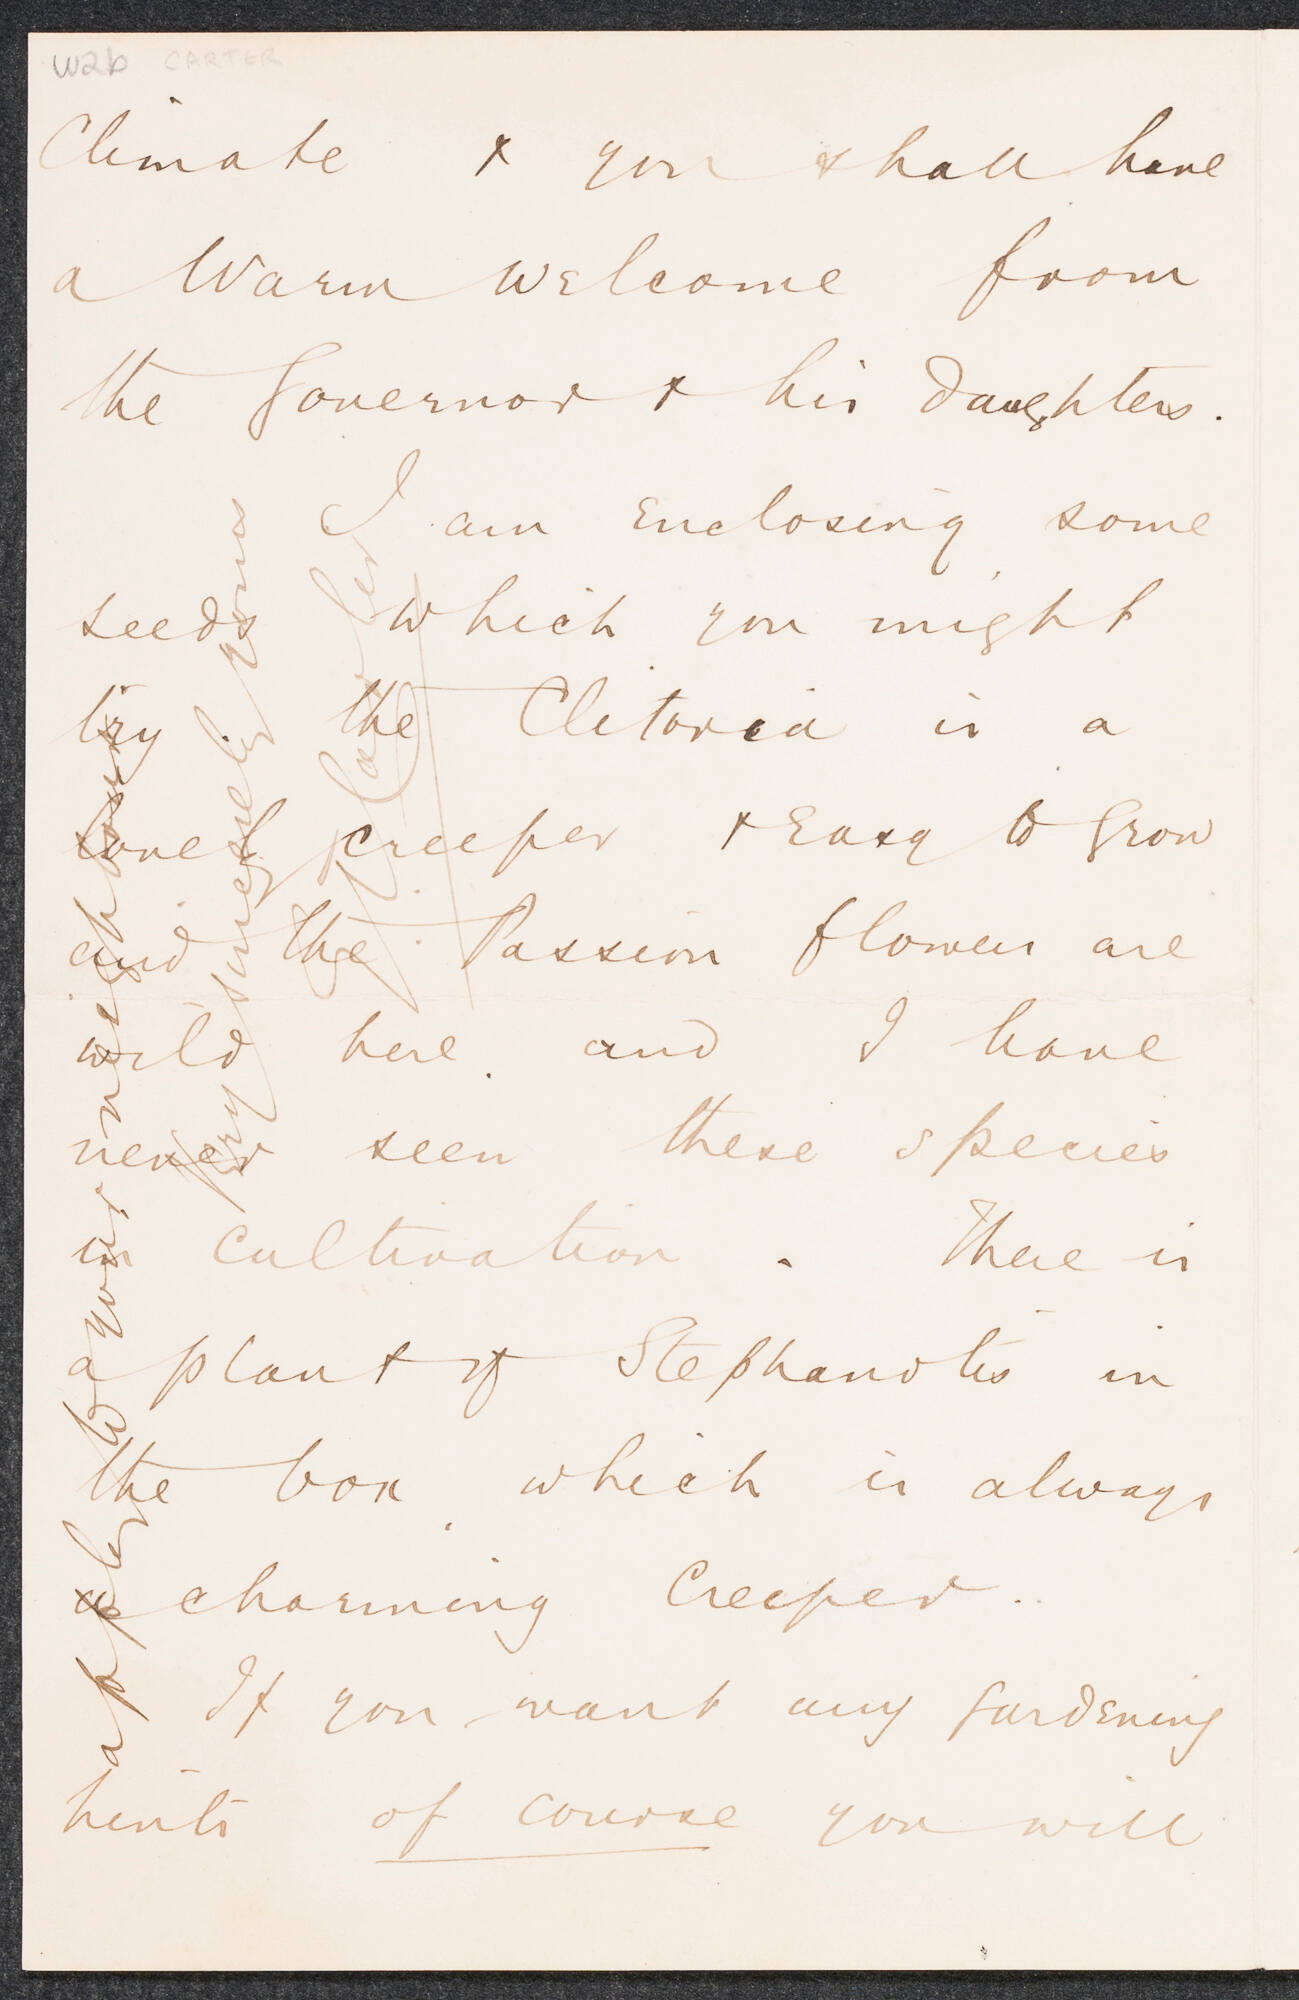 W2b CARTER
Climate & you shall have
a warm welcome from
the Governor & his Daughters.
I am enclosing some
seeds which you might
try. the Clitoria is a
lovely creeper & easy to grow
and the Passion flowers are
wild here. and I have
never seen these species
in cultivation. There is
a plant of Stephanotis in
the box, which is always
a charming Creeper..
If you want any gardening
hints of course you will
apply to your neighbour
Very sincerely yours
Carter